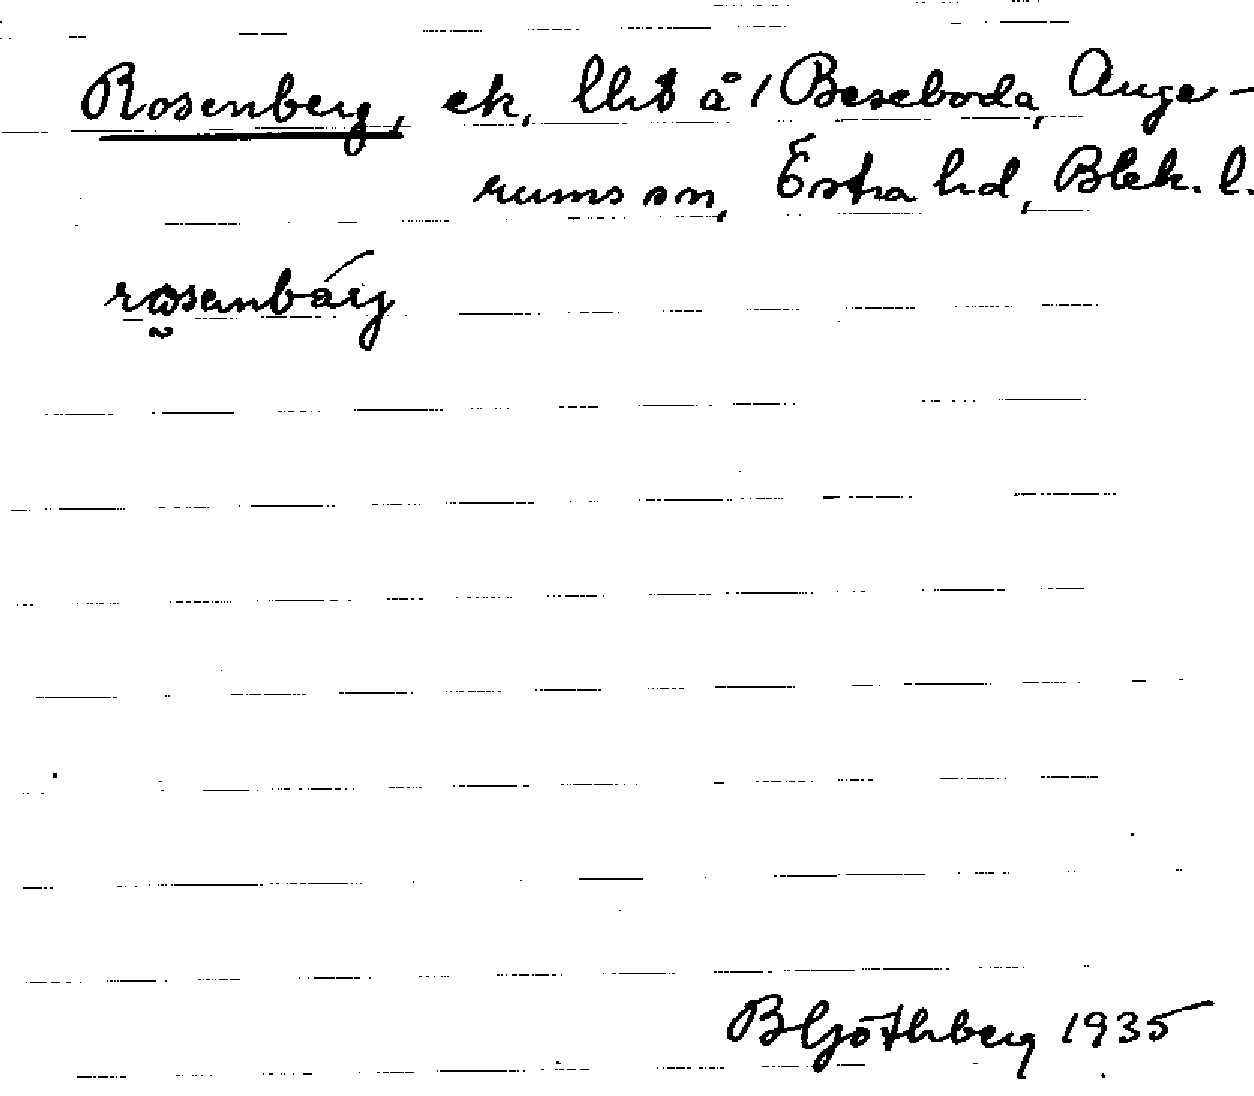 Rosenberg, ek, lht å 1 Beseboda, Auge-
rums sn, Östra hd, Blek. l.
rosenbärj
B Göthberg 1935